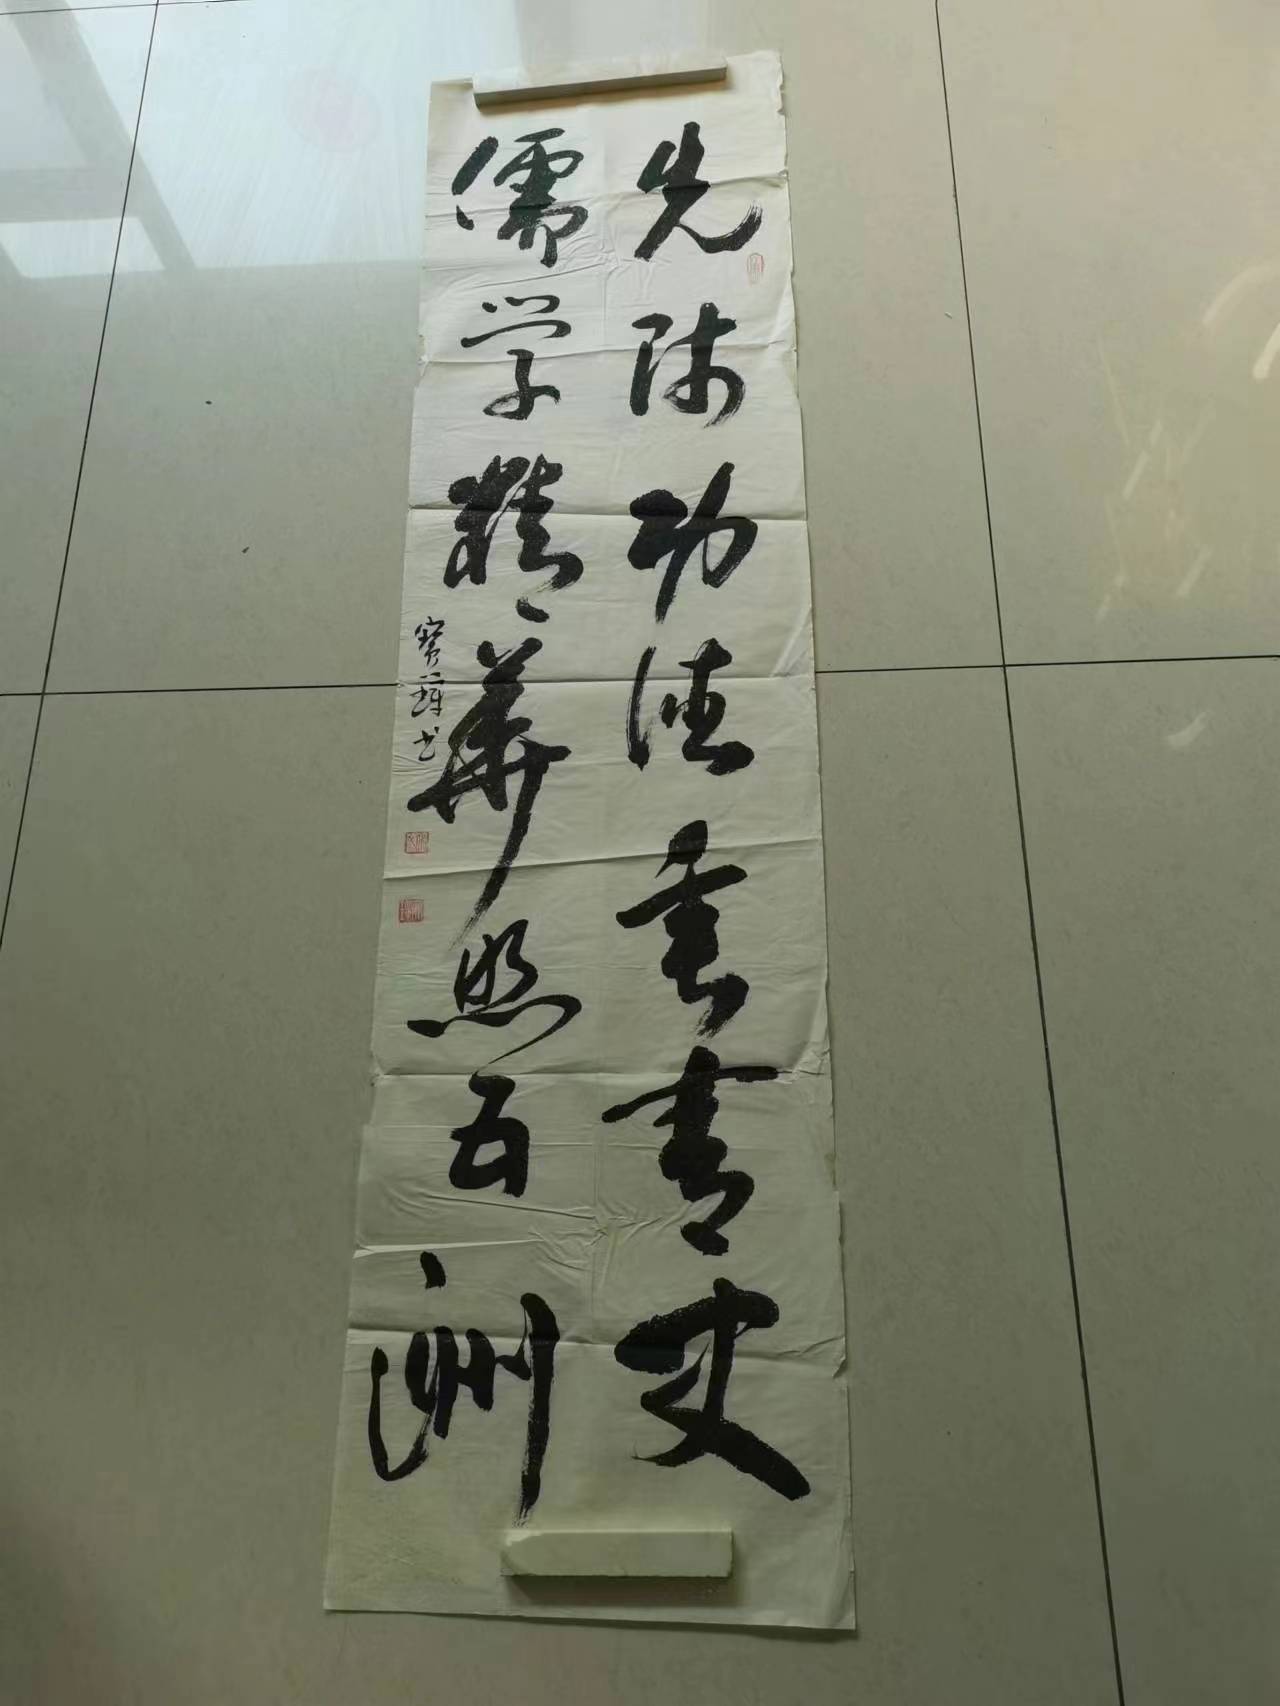 先师功德垂青史
儒学精华照五洲
宝璋书